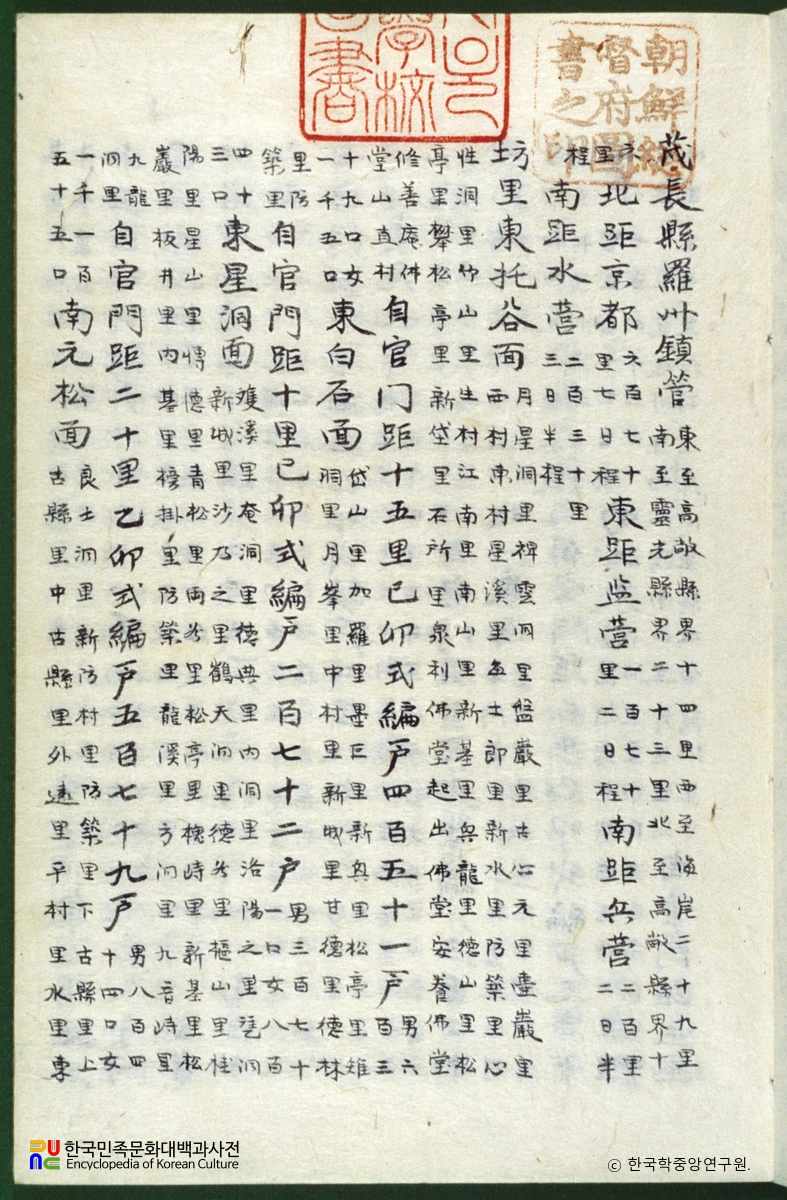 朝鮮總
督府圖
書之印
學校
茂長縣羅州鎮管東至高敞縣界十四里西至海岸二十九里
南至靈光縣界二十三里北至高敞縣界十
六里北距京都六百七十里七日程東距监營一百七十里二日程南距兵營二百里二日半
程南距水營二百三十里三日半程
坊里東托谷面月星洞里禅雲洞里盤巖里古心元里壺巖里
西村東村星溪里每士郎里新水里防築里心
性洞里竹山里生村江南里南山里新基里興龍里德山里松
亭里攀松亭里新垈里石所里衆利佛堂起出佛堂安養佛堂
修善庵佛堂山直村自官门距十五里己卯式編戶四百五十一戶男六百三
十九口女一千五口東白石面垈山里加羅里墨巨里新興里松亭里雉
洞里月峯里中村里新城里甘德里德林
里防築里自官門距十里己卯式編戶二百七十二戶男三百七十一口女八百
四十三口東星洞面獲溪里奄洞里德興里內洞里洛陽之里洞
新城里沙乃之里鶴天洞里德谷里樞山里桂
陽里星山里博德里青松里両谷里松亭里槐峙里新基里松
巖里板井里內基里榜掛里防築里龍溪里方洞里九音峙里
九龍洞里自官門距二十里乙卯式編戶五百七十九戶男八百四十四口女
一千一百五十五口南元松面良士洞里新防村里防築里下古縣里上
古縣里中古縣里外遠里平村里水里東
한국민족문화대백과사전
Encyclopedia of Korean Culture
© 한국학중앙연구원.